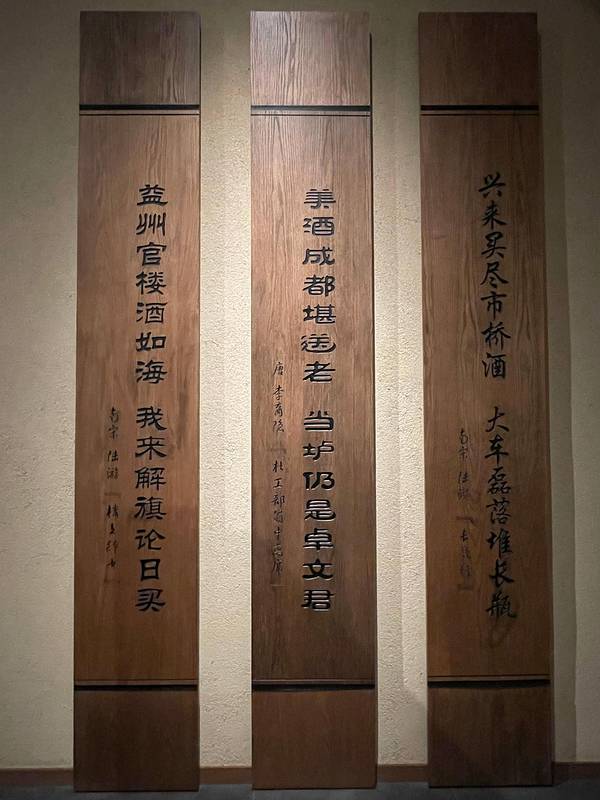 兴来买尽市桥酒 大车磊落堆长瓶
南宋 陆游『长歌行』
美酒成都堪送老 当垆仍是卓文君
唐 李商隐『杜工部蜀中离席』
益州官楼酒如海 我来解旗论日买
南宋 陆游『楼上醉书』